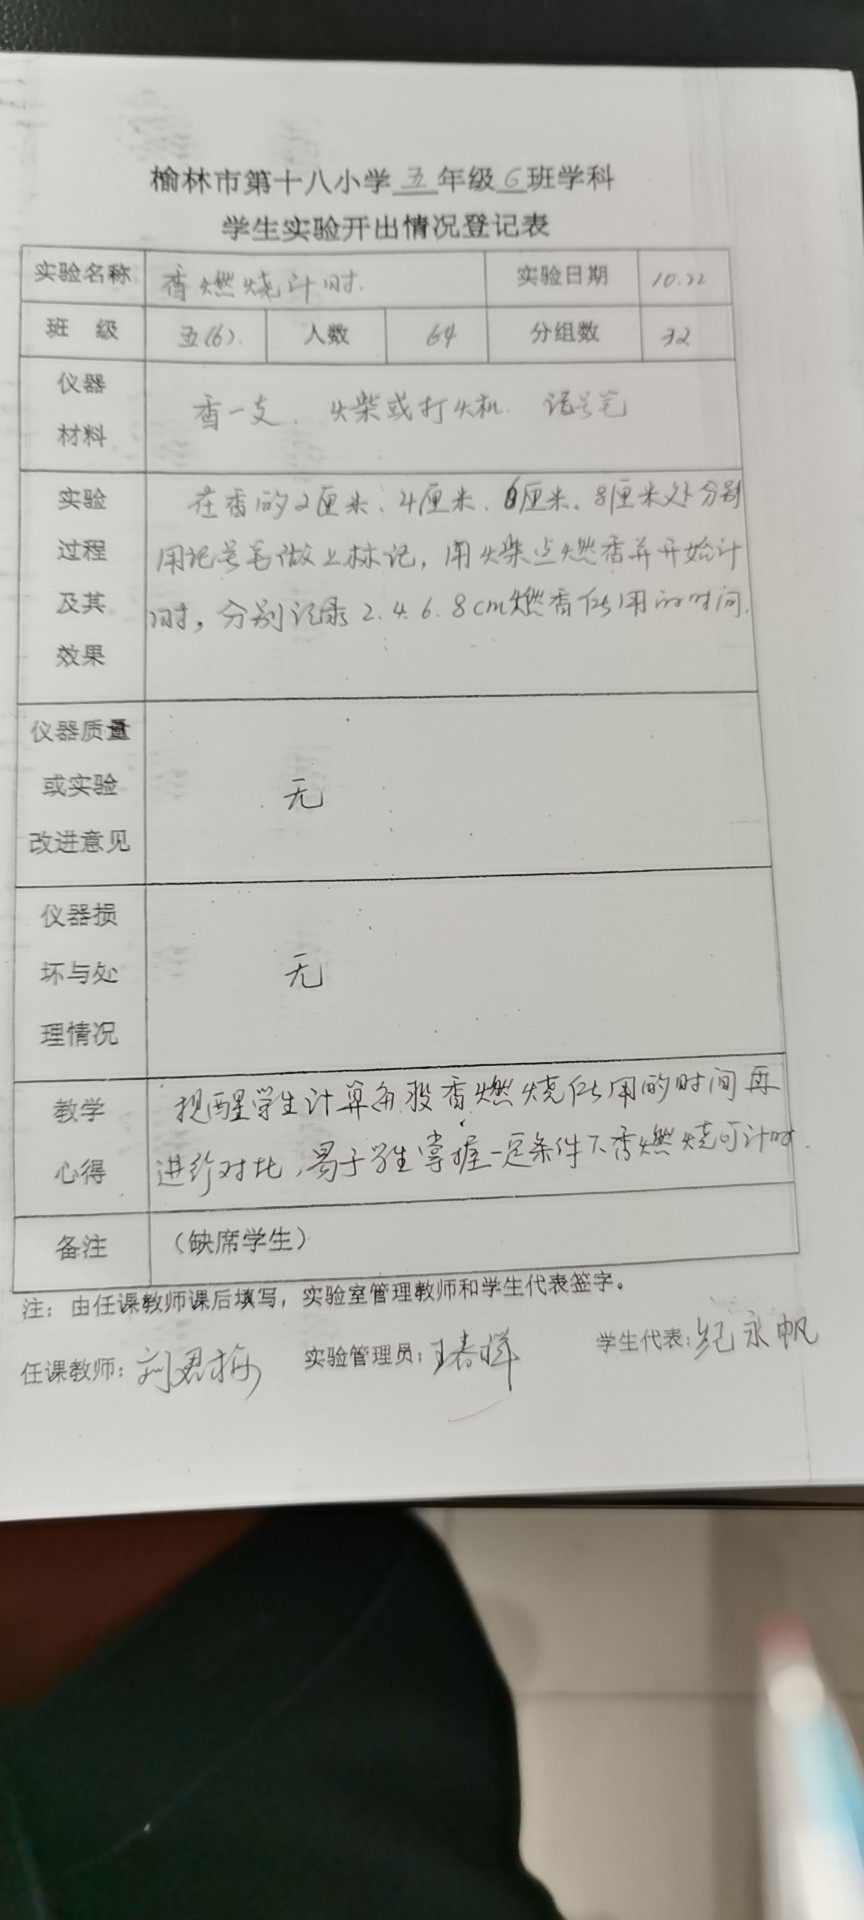 榆林市第十八小学五年级6班学科
学生实验开出情况登记表
实验名称 香燃烧计时. 实验日期 10.22
班 级 五(6). 人数 64 分组数 32
仪器
材料
香一支、火柴或打火机. 记号笔
实验
过程
及其
效果
在香的2厘米、4厘米、6厘米、8厘米处分别
用记号笔做上标记，用火柴点燃香并开始计
时，分别记录2.4.6.8cm燃香所用的时间.
仪器质量
或实验
改进意见
无
仪器损
坏与处
理情况
无
教学
心得
提醒学生计算每段香燃烧所用的时间再
进行对比，易于学生掌握一定条件下香燃烧可计时.
备注 （缺席学生）
注：由任课教师课后填写，实验室管理教师和学生代表签字。
任课教师：刘君梅 实验管理员：王春祥 学生代表：纪永帆